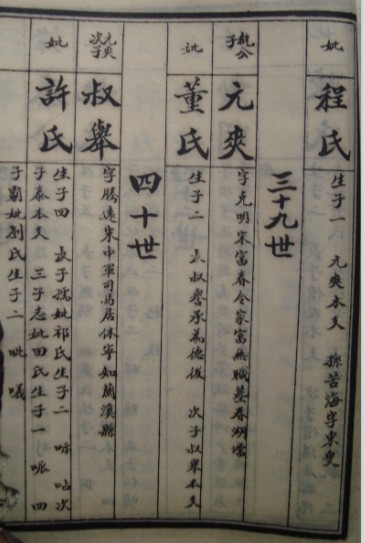 妣
程氏
生子一 元爽本支 孫苦海字東叟
三十九世
龍公子
元爽
字克明宋富春令家富無職墓春湖壩
妣
董氏
生子二 長叔譽承為德後 次子叔舉本支
四十世
元爽次子
叔舉
字勝遠宋中軍司馬居休寧知蘭溪縣
妣
許氏
生子四 長子孺妣祁氏生子二 咏 呫 次
子泰本支 三子志妣田氏生子一 哌 四
子霸妣劉氏生子二 呲 㬢